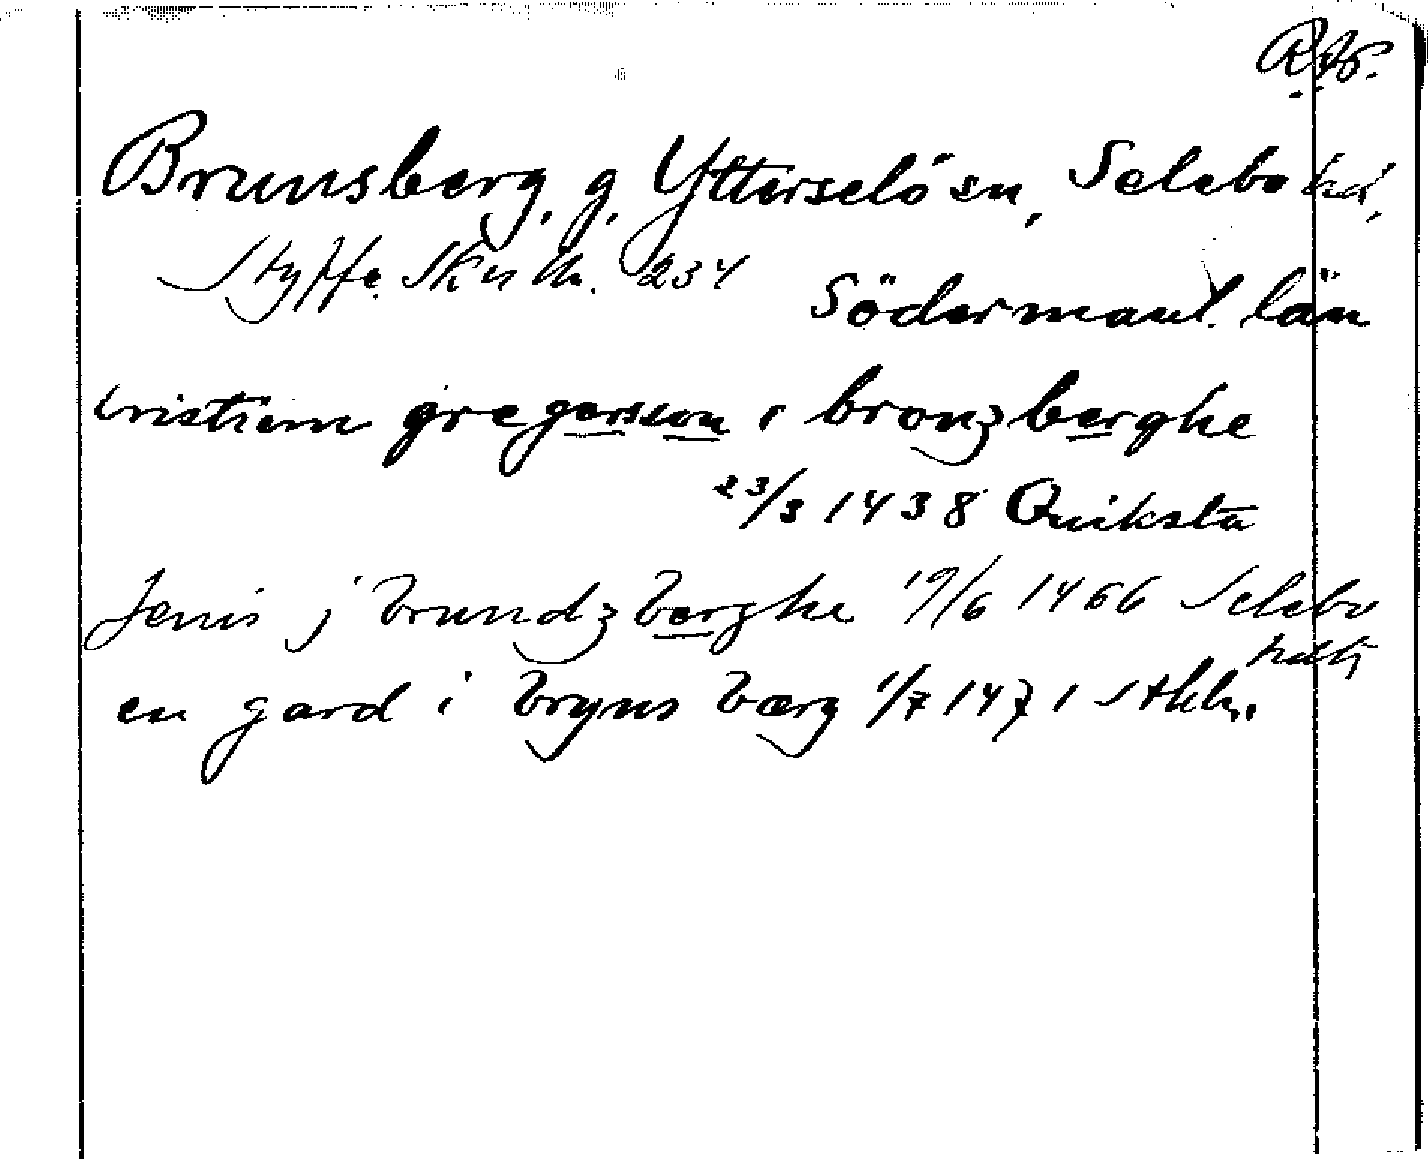 RAp.
Brunsberg, g, Ytterselö sn, Selebo hd,
Styffe Skn Un. 234
Södermanl. län
cristiern gregersson i bronzberghe
23/3 1438 Quiksta
Jenis j brundzberghe 19/6 1466 Selebo
hdtg
en gard i bryns berg 1/7 1471 Sthlm